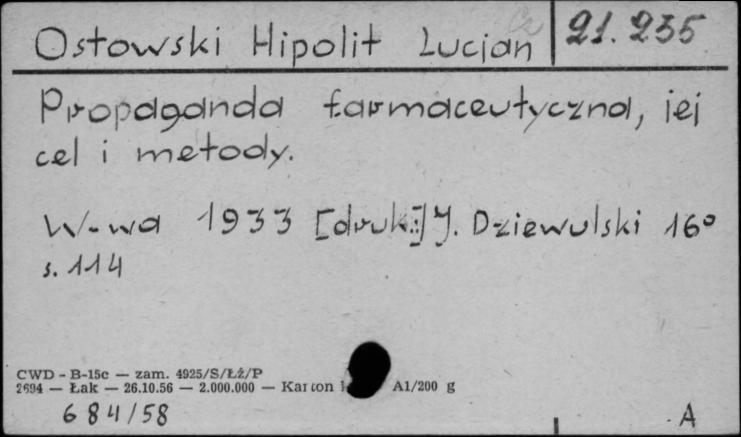 Ostowski Hipolit Lucjan 21.235
Propaganda farmaceutyczna, jej
cel i metody.
W-wa 1933 [druk:] J. Dziewulski 16°
s. 114
CWD - B-15c — zam. 4925/S/Łż/P
2694 — Łak — 26.10.56 — 2.000.000 — Karton A1/200 g
684/58 A